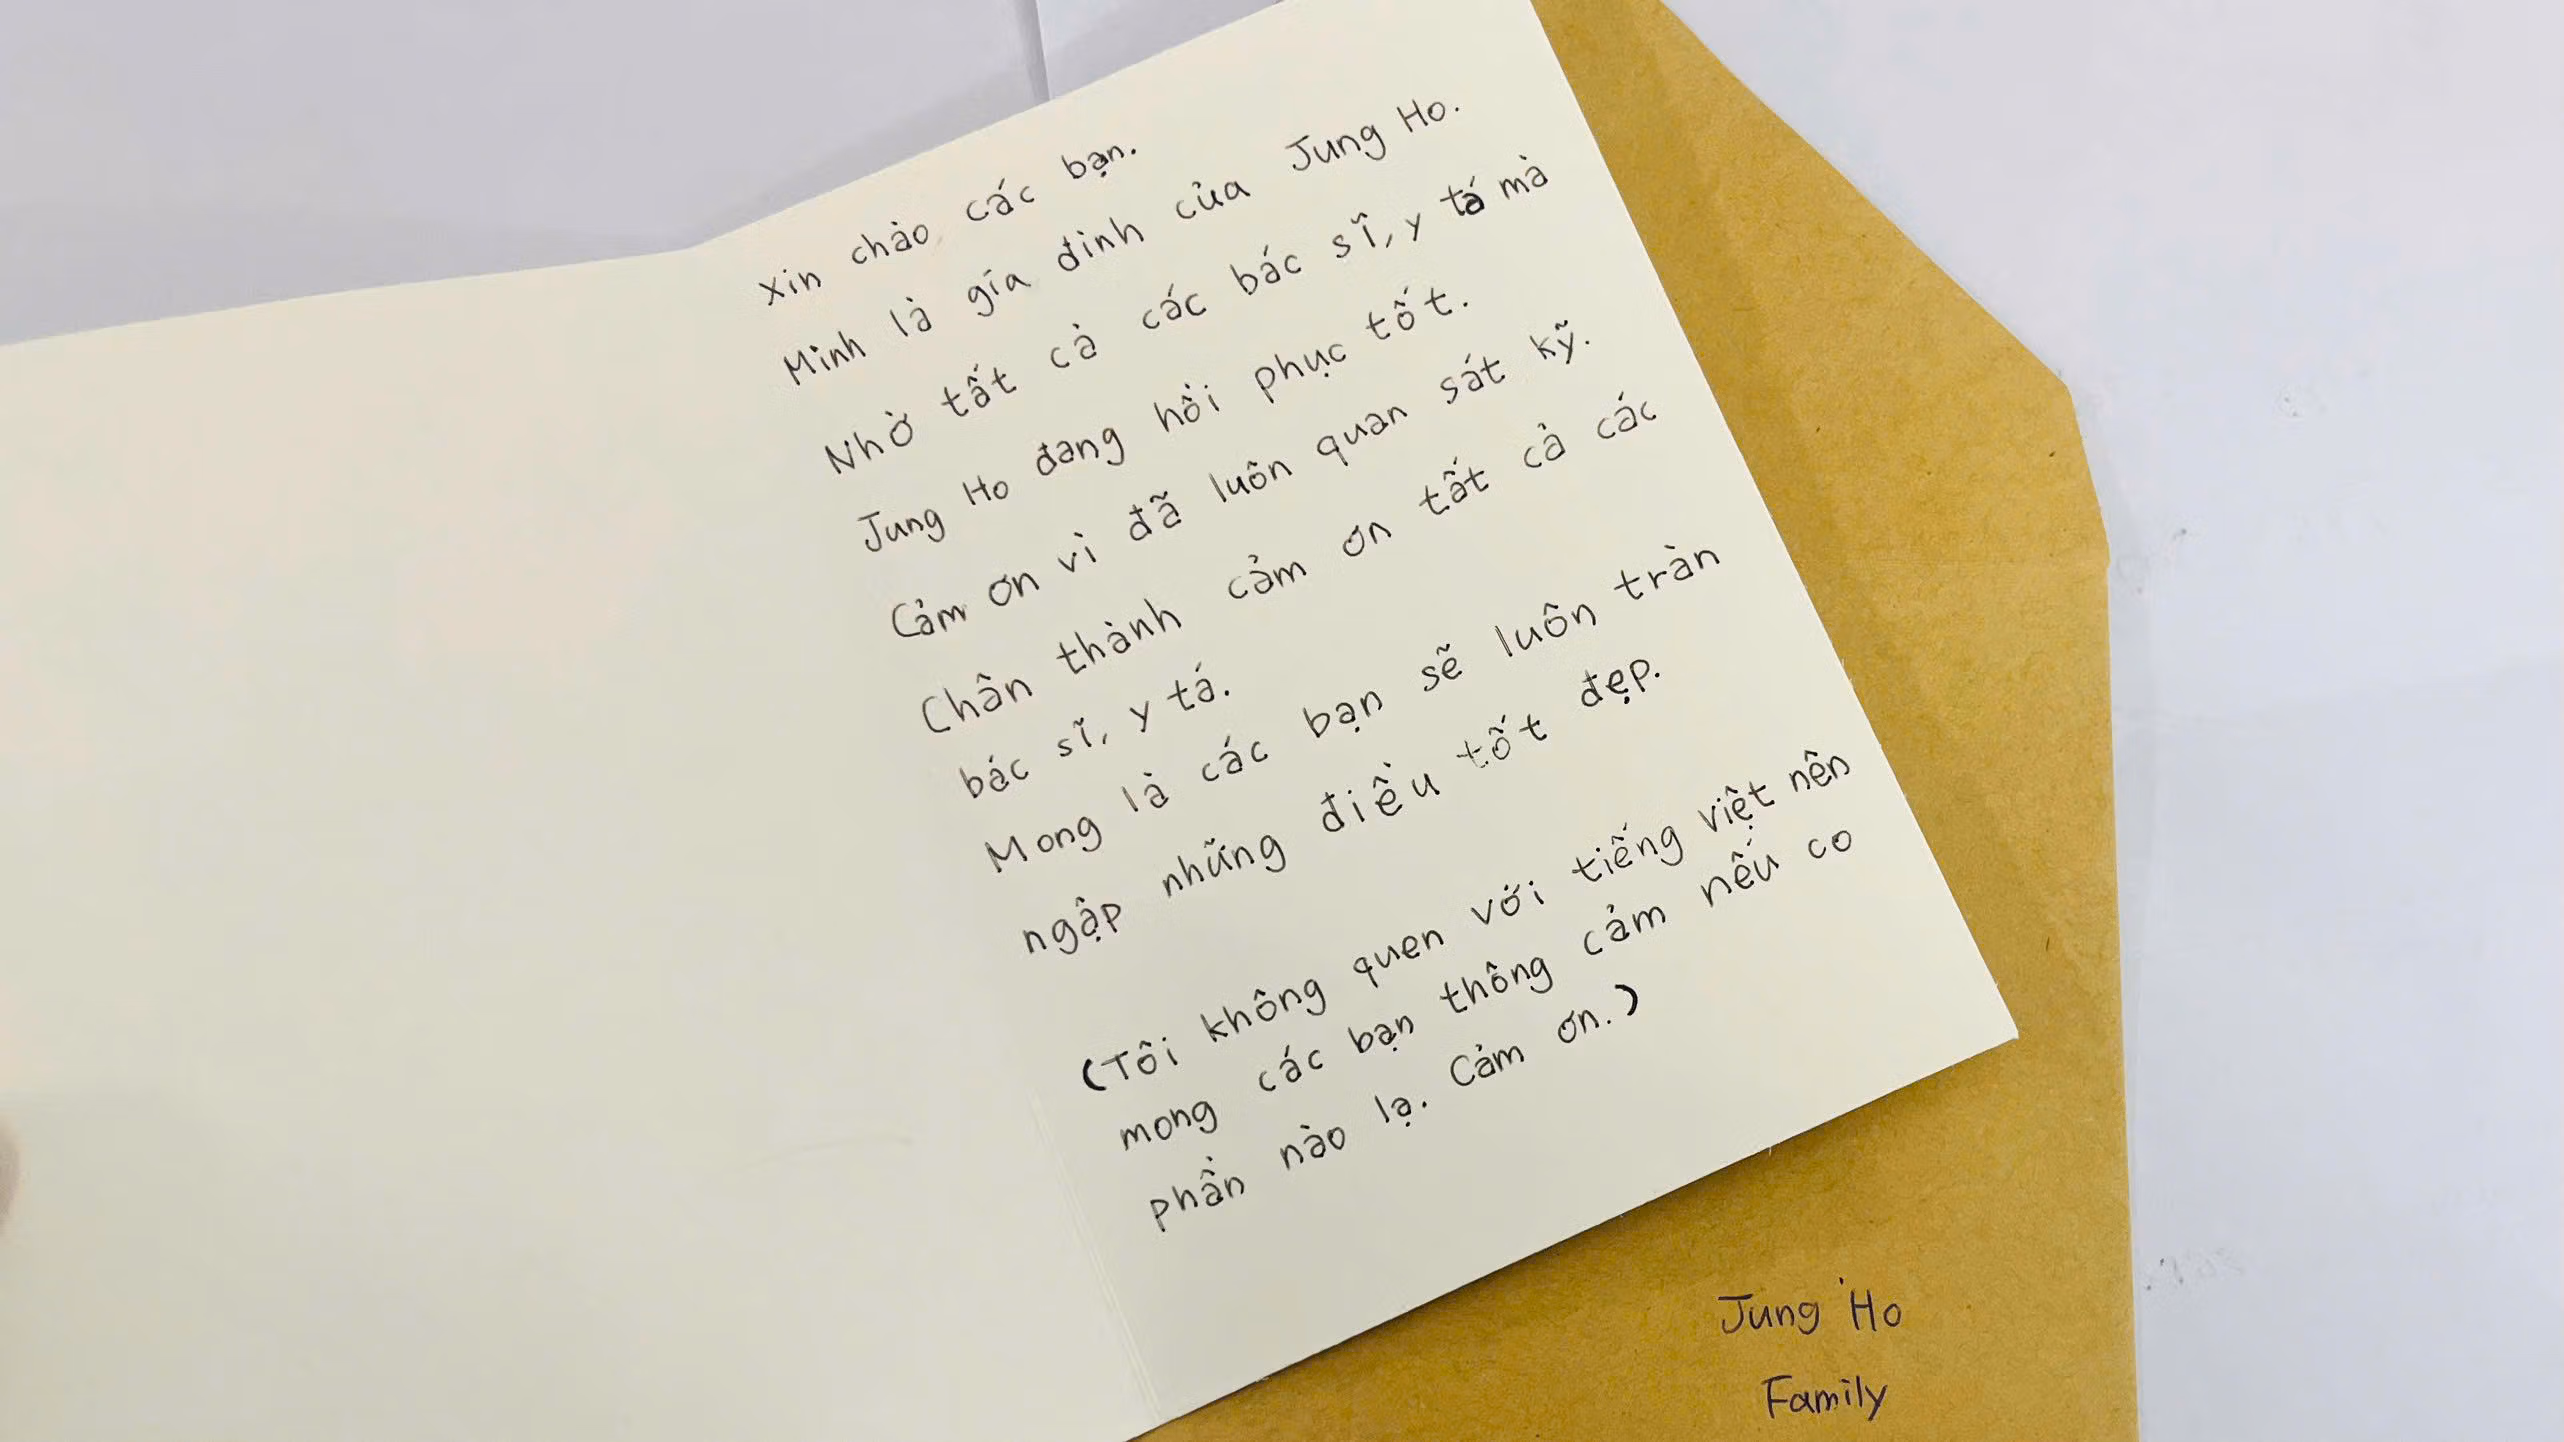 Xin chào các bạn.
Mình là gía đình của Jung Ho.
Nhờ tất cả các bác sĩ, y tá mà
Jung Ho đang hồi phục tốt.
Cảm ơn vì đã luôn quan sát kỹ.
Chân thành cảm ơn tất cả các
bác sĩ, y tá.
Mong là các bạn sẽ luôn tràn
ngập những điều tốt đẹp.
(Tôi không quen với tiếng việt nên
mong các bạn thông cảm nếu co
phần nào lạ. Cảm ơn.)
Jung Ho
Family